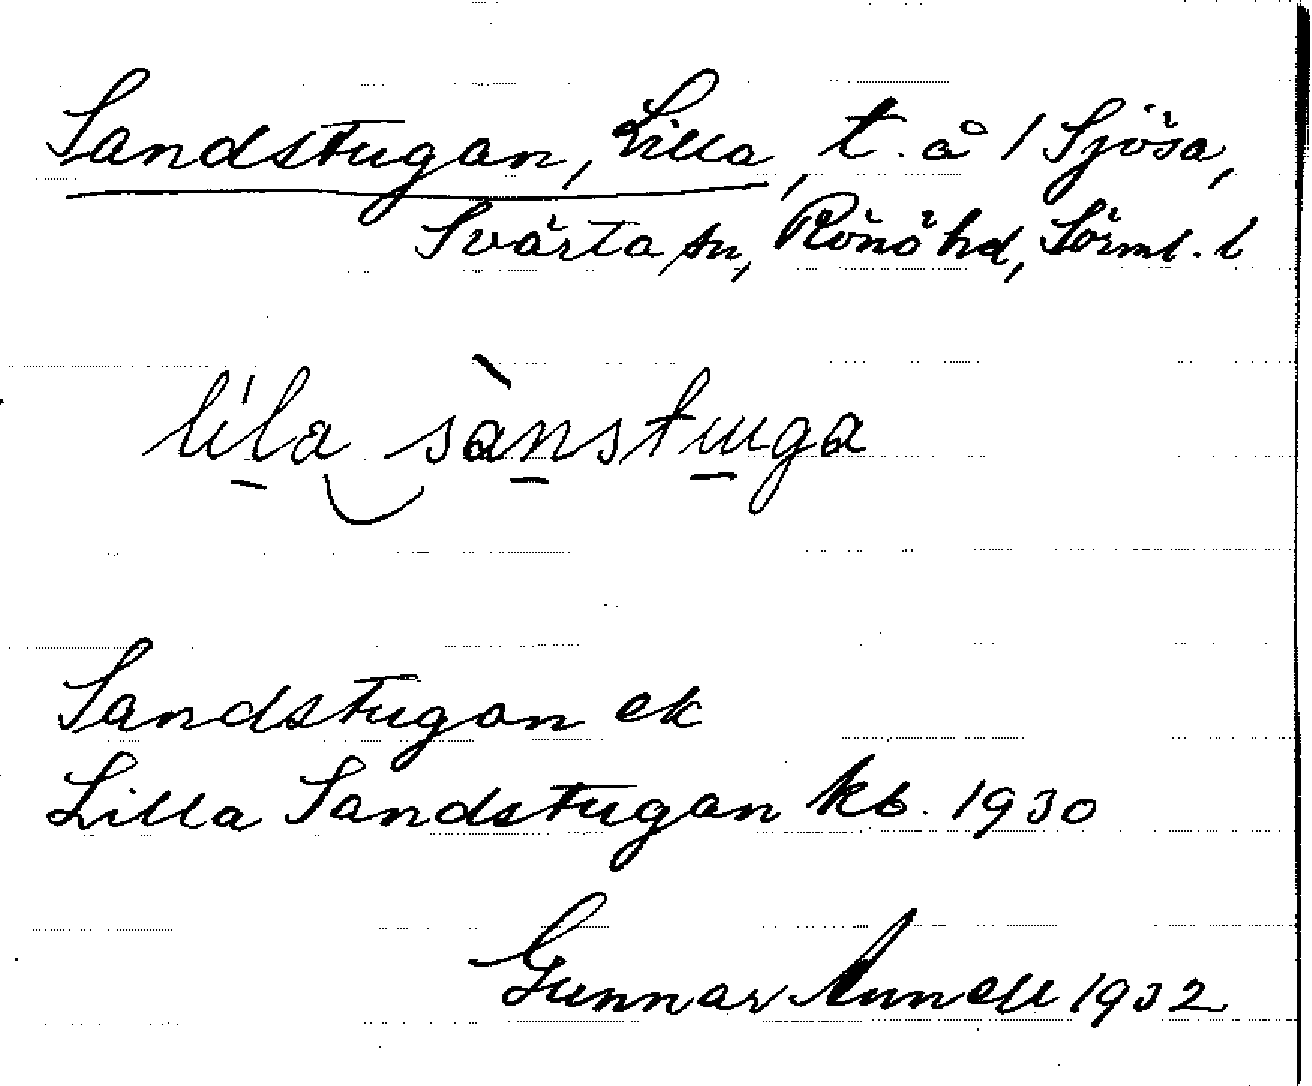 Sandstugan, Lilla, t. å 1 Sjösa,
Svärta sn, Rönö hd, Sörml. l
lìla sànstuga
Sandstugan ek
Lilla Sandstugan kb. 1930
Gunnar Annell 1932